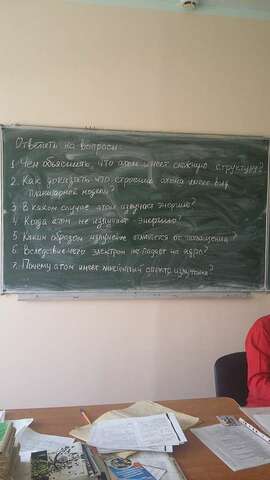 Ответить на вопросы:
1. Чем объяснить, что атом имеет сложную структуру?
2. Как доказать что строение атома имеет вид
планетарной модели?
3. В каком случае атом излучает энергию?
4. Когда атом не излучает энергию?
5. Каким образом излучение отличается от поглощения?
6. Вследствие чего электрон не падает на ядро?
7. Почему атом имеет линейчатый спектр излучения?